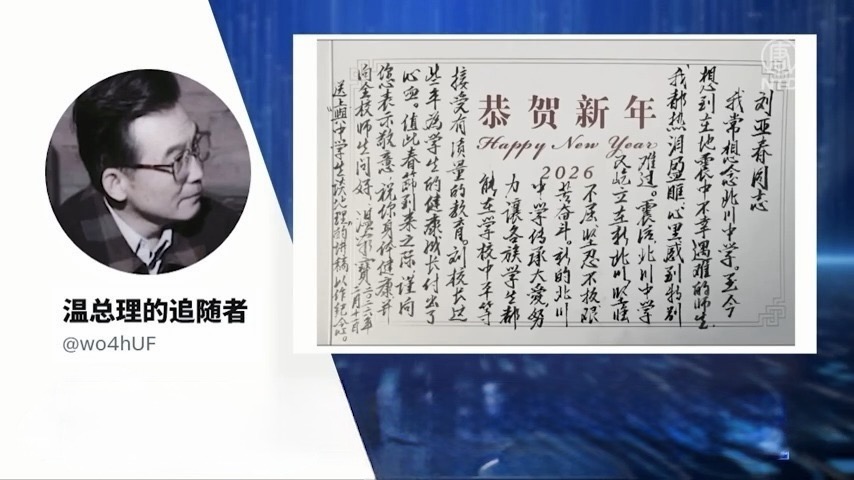 温总理的追随者
@wo4hUF
恭贺新年
Happy New Year
2026
刘亚春同志
我常想念北川中学。至今
想到在地震中不幸遇难的师生,
我都热泪盈眶,心里感到特别
难过。震后,北川中学
又屹立在新北川,坚强
不屈坚忍不拔艰
苦奋斗。新的北川
中学传承大爱努
力让各族学生都
能在学校中平等
接受有质量的教育。刘校长这
些年为学生的健康成长付出了
心血。值此春节到来之际,谨向
您表示敬意,祝你身体健康并
向全校师生问好。温家宝 二〇二六年
二月十一日
送上与中学生谈地理的讲稿,以作纪念。
NTD